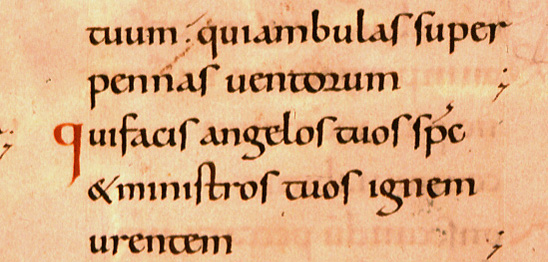 tuum . quiambulas super
pennas uentorum ;
quifacis angelos tuos sp̅c
&ministros tuos ignem
urentem ;